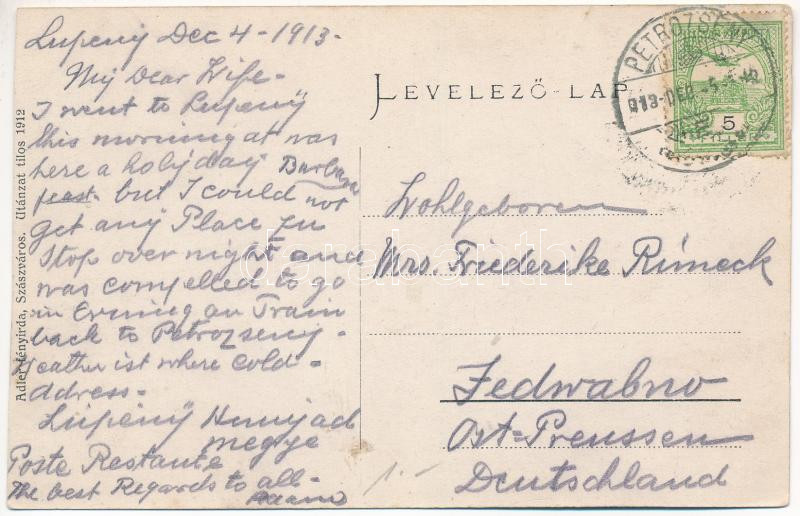 Lupeny Dec 4 - 1913 -
My Dear Wife -
I went to Lupeny
this morning at was
here a holyday Barbara
feast - but I could not
get any Place zu
Stop over night and
was compelled to go
in Evening on Train
back to Petrozseny -
Weather ist where cold -
Adress -
Lupeny Hunyad
megye
Poste Restante
The best Regards to all -
LEVELEZŐ-LAP
PETROZSÉNY
913-DEC.-5
5
Wohlgeboren
Mrs Friederike Rimeck
Jedwabno
Ost-Preussen
Deutschland
1.-
Adler fényirda, Szászváros. Utánzat tilos 1912
darabanth